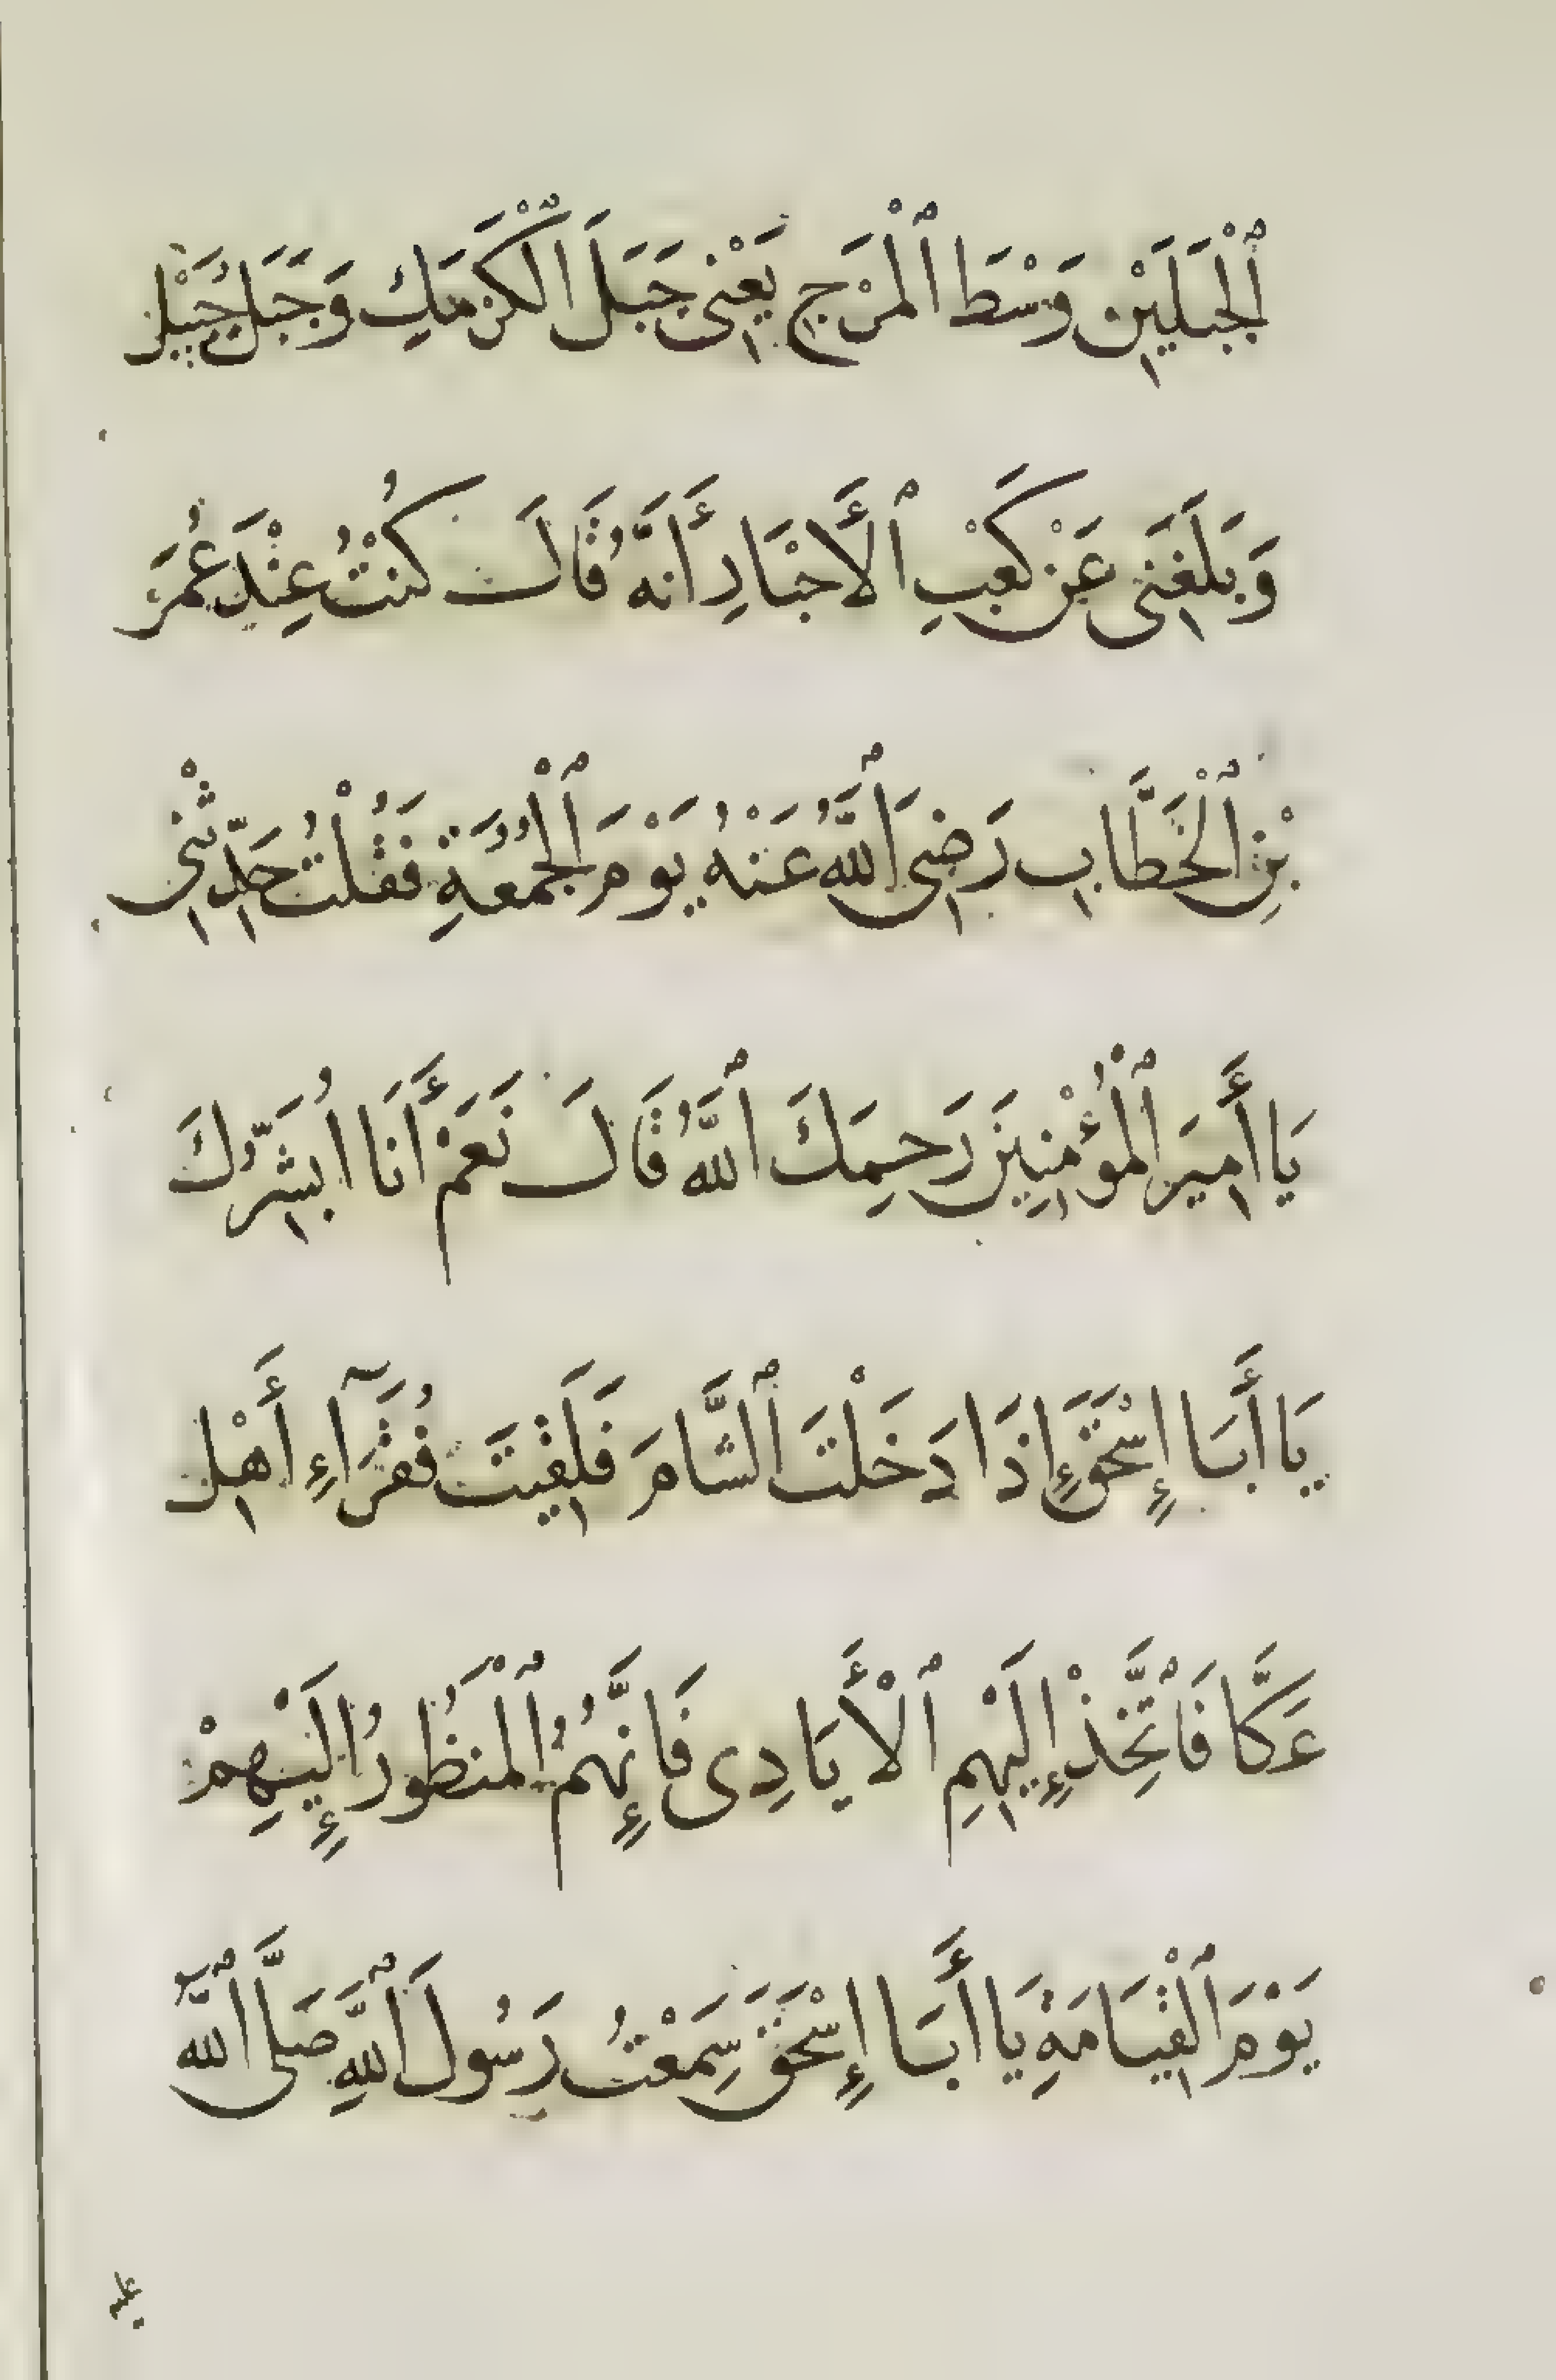 ٱلْجَبَلَيْنِ وَسْطَ ٱلْمَرْجِ يَعْنِى جَبَلَ الْكَرْمَكِ وَجَبَلَ جُبَيْلٍ
وَبَلَغَنَى عَنْ كَعْبِ ٱلْأَحْبَارِ أَنَّهُ قَالَ كُنْتُ عِنْدَ عُمَرَ
بْنِ ٱلْخَطَّابِ رَضِىَ ٱللَّهُ عَنْهُ يَوْمَ ٱلْجُمُعَةِ فَقُلْتُ حَدِّثْنِى
يَا أَمِيرَ ٱلْمُؤْمِنِينَ رَحِمَكَ ٱللَّهُ قَالَ نَعَمْ أَنَا اُبَشِّرُكَ
يَا أَبَا إِسْحَقَ إِذَا دَخَلْتَ ٱلشَّامَ فَلَقِيتَ فُقَرَآءِ أَهْلِ
عَكَّا فَٱتَّخِذْ إِلَيْهِمِ ٱلْأَيَادِى فَإِنَّهُمُ ٱلْمَنظُورُ إِلَيْهِمْ
يَوْمَ ٱلْقِيَامَةِ يَا أَبَا إِسْحَقَ سَمِعْتُ رَسُولَ ٱللَّهِ صَلَّى ٱللَّهُ
عليه